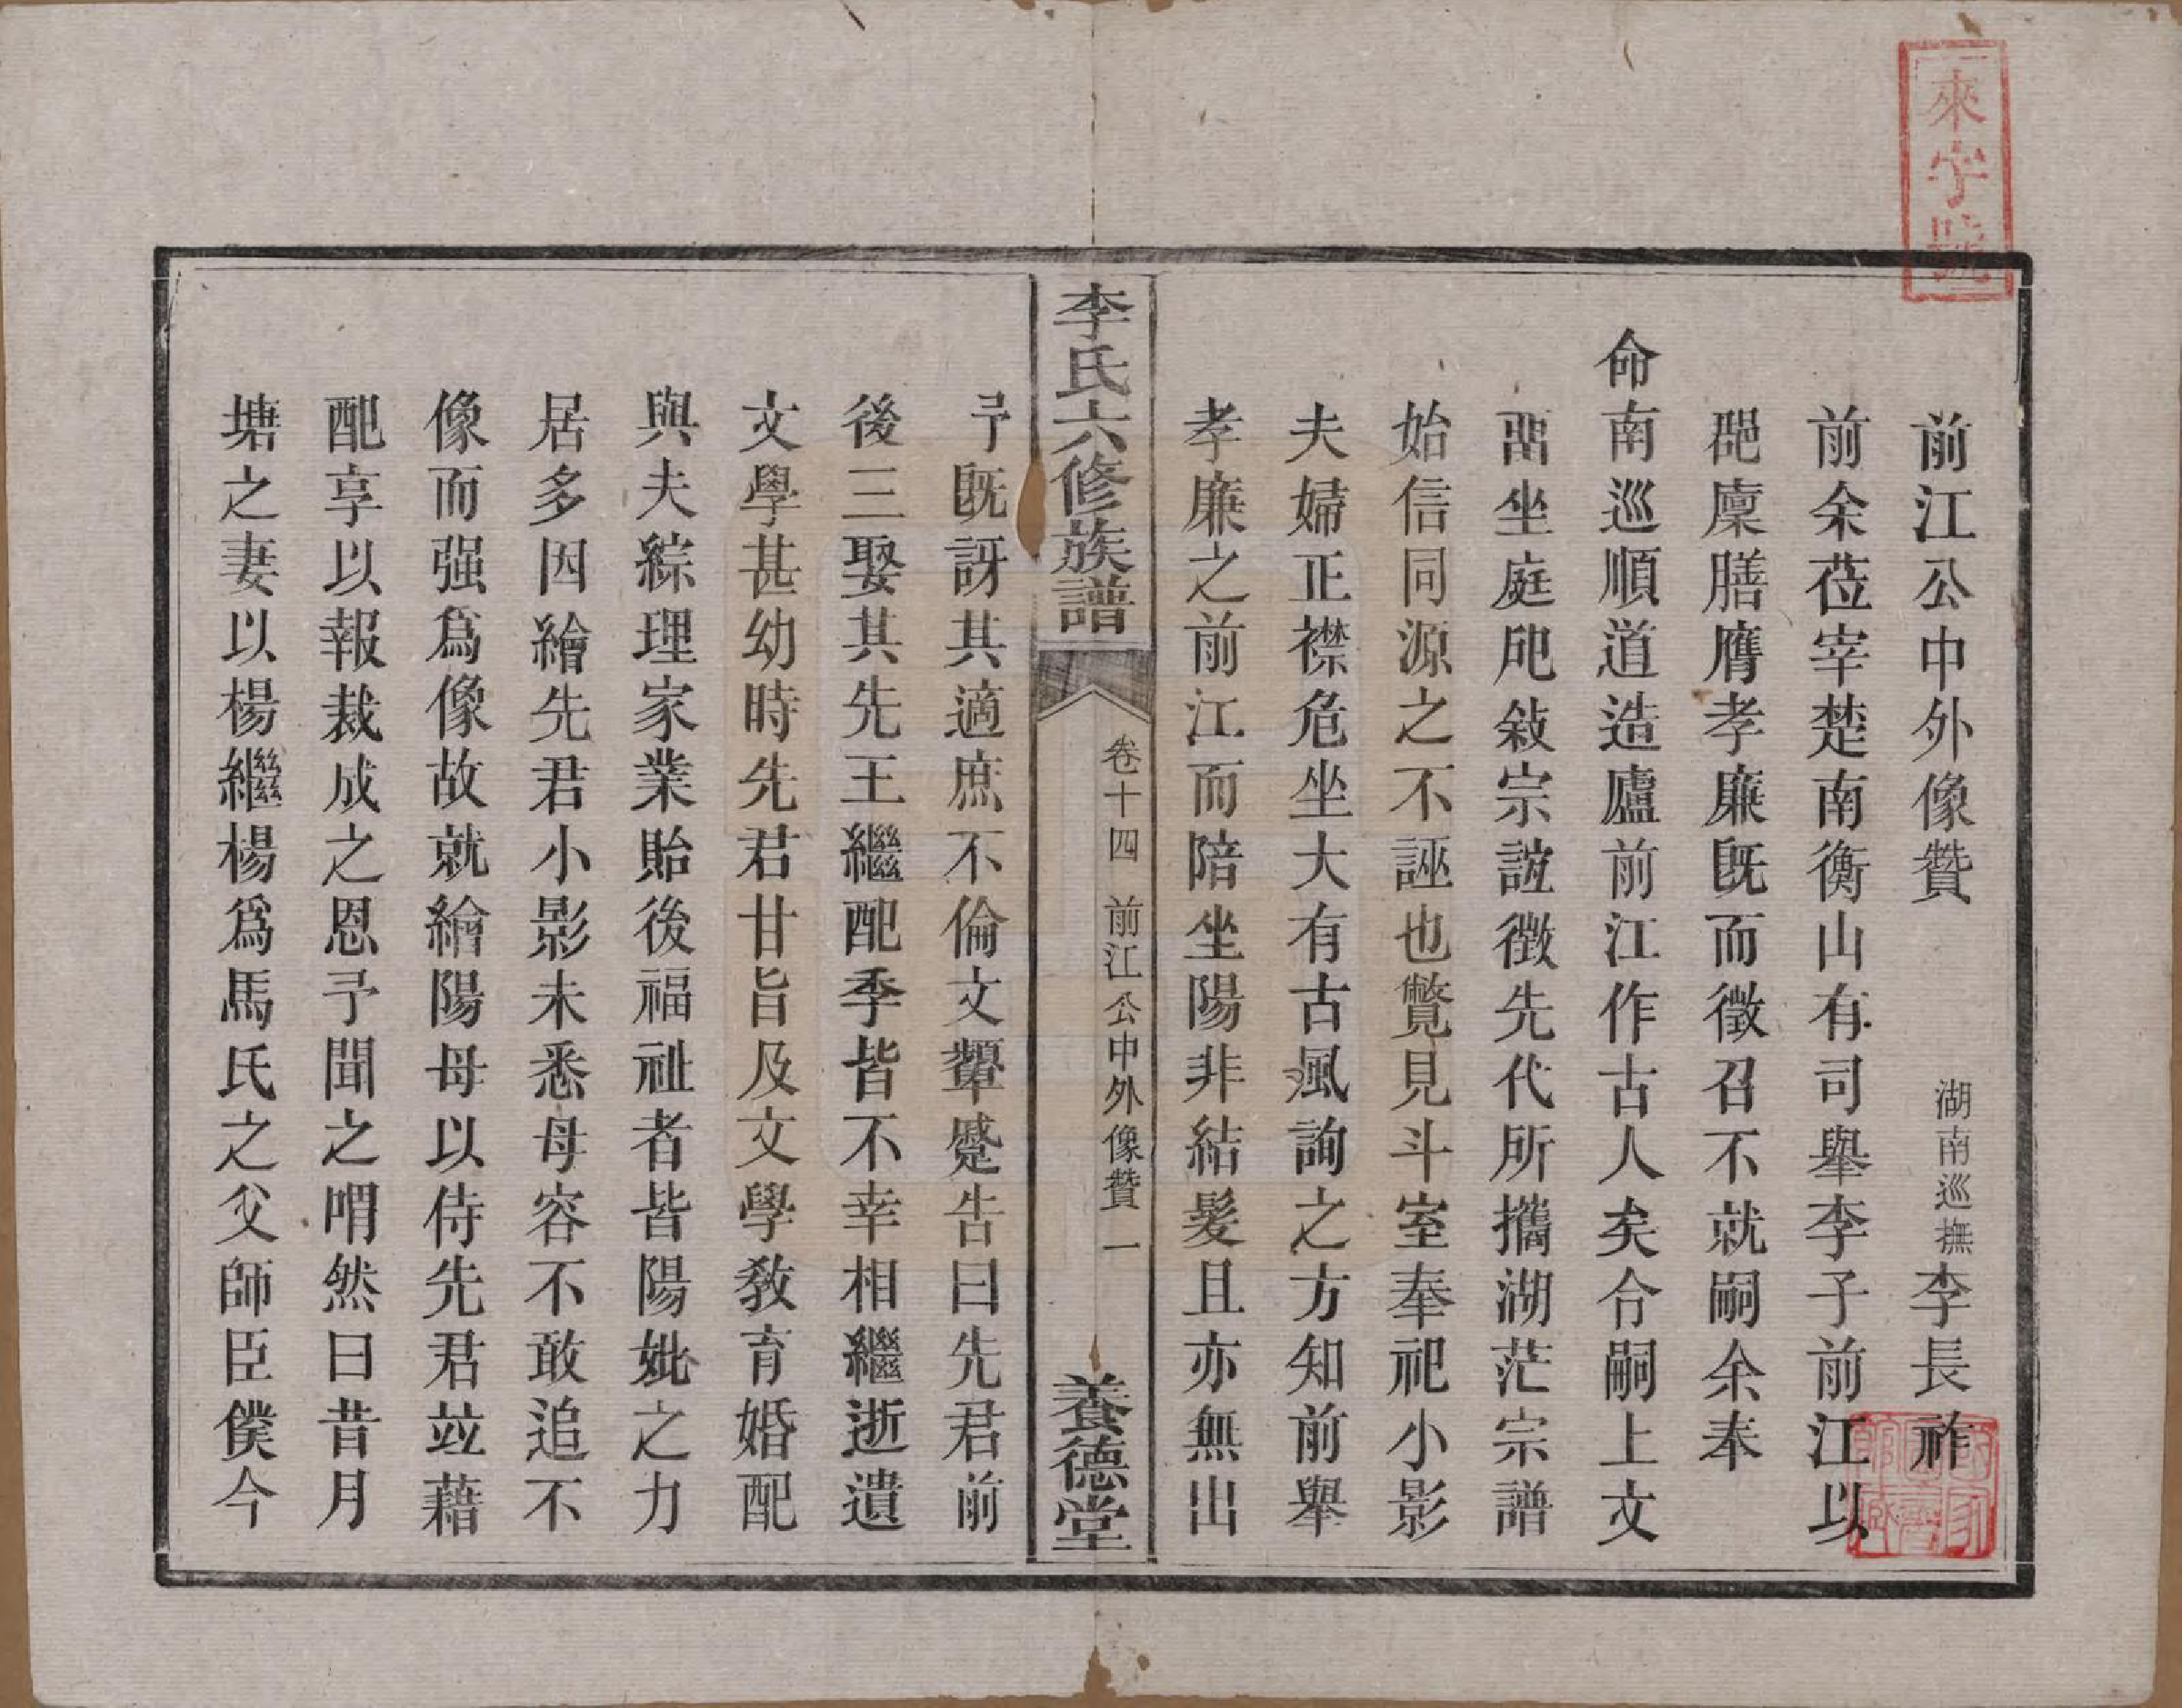 來字號
前江公中外像贊 湖南巡撫李長祚
前余莅宰楚南衡山有司舉李子前江以
邑廩膳膺孝廉旣而徵召不就嗣余奉
命南巡順道造廬前江作古人矣令嗣上文
畱坐庭敍宗誼徵先代所攜湖茫宗譜
始信同源之不誣也覽見斗室奉祀小影
夫婦正襟危坐大有古風詢之方知前舉
孝廉之前江而陪坐陽非結髮且亦無出
李氏六修族譜 卷十四 前江公中外像贊 一 養德堂
予旣訝其適庶不倫文顰蹙告曰先君前
後三娶其先王繼配季皆不幸相繼逝遺
文學甚幼時先君甘旨及文學敎育婚配
與夫綜理家業貽後福祉者皆陽妣之力
居多因繪先君小影未悉母容不敢追不
像而强爲像故就繪陽母以侍先君竝藉
配享以報裁成之恩予聞之喟然曰昔月
塘之妻以楊繼楊爲馬氏之父師臣僕今